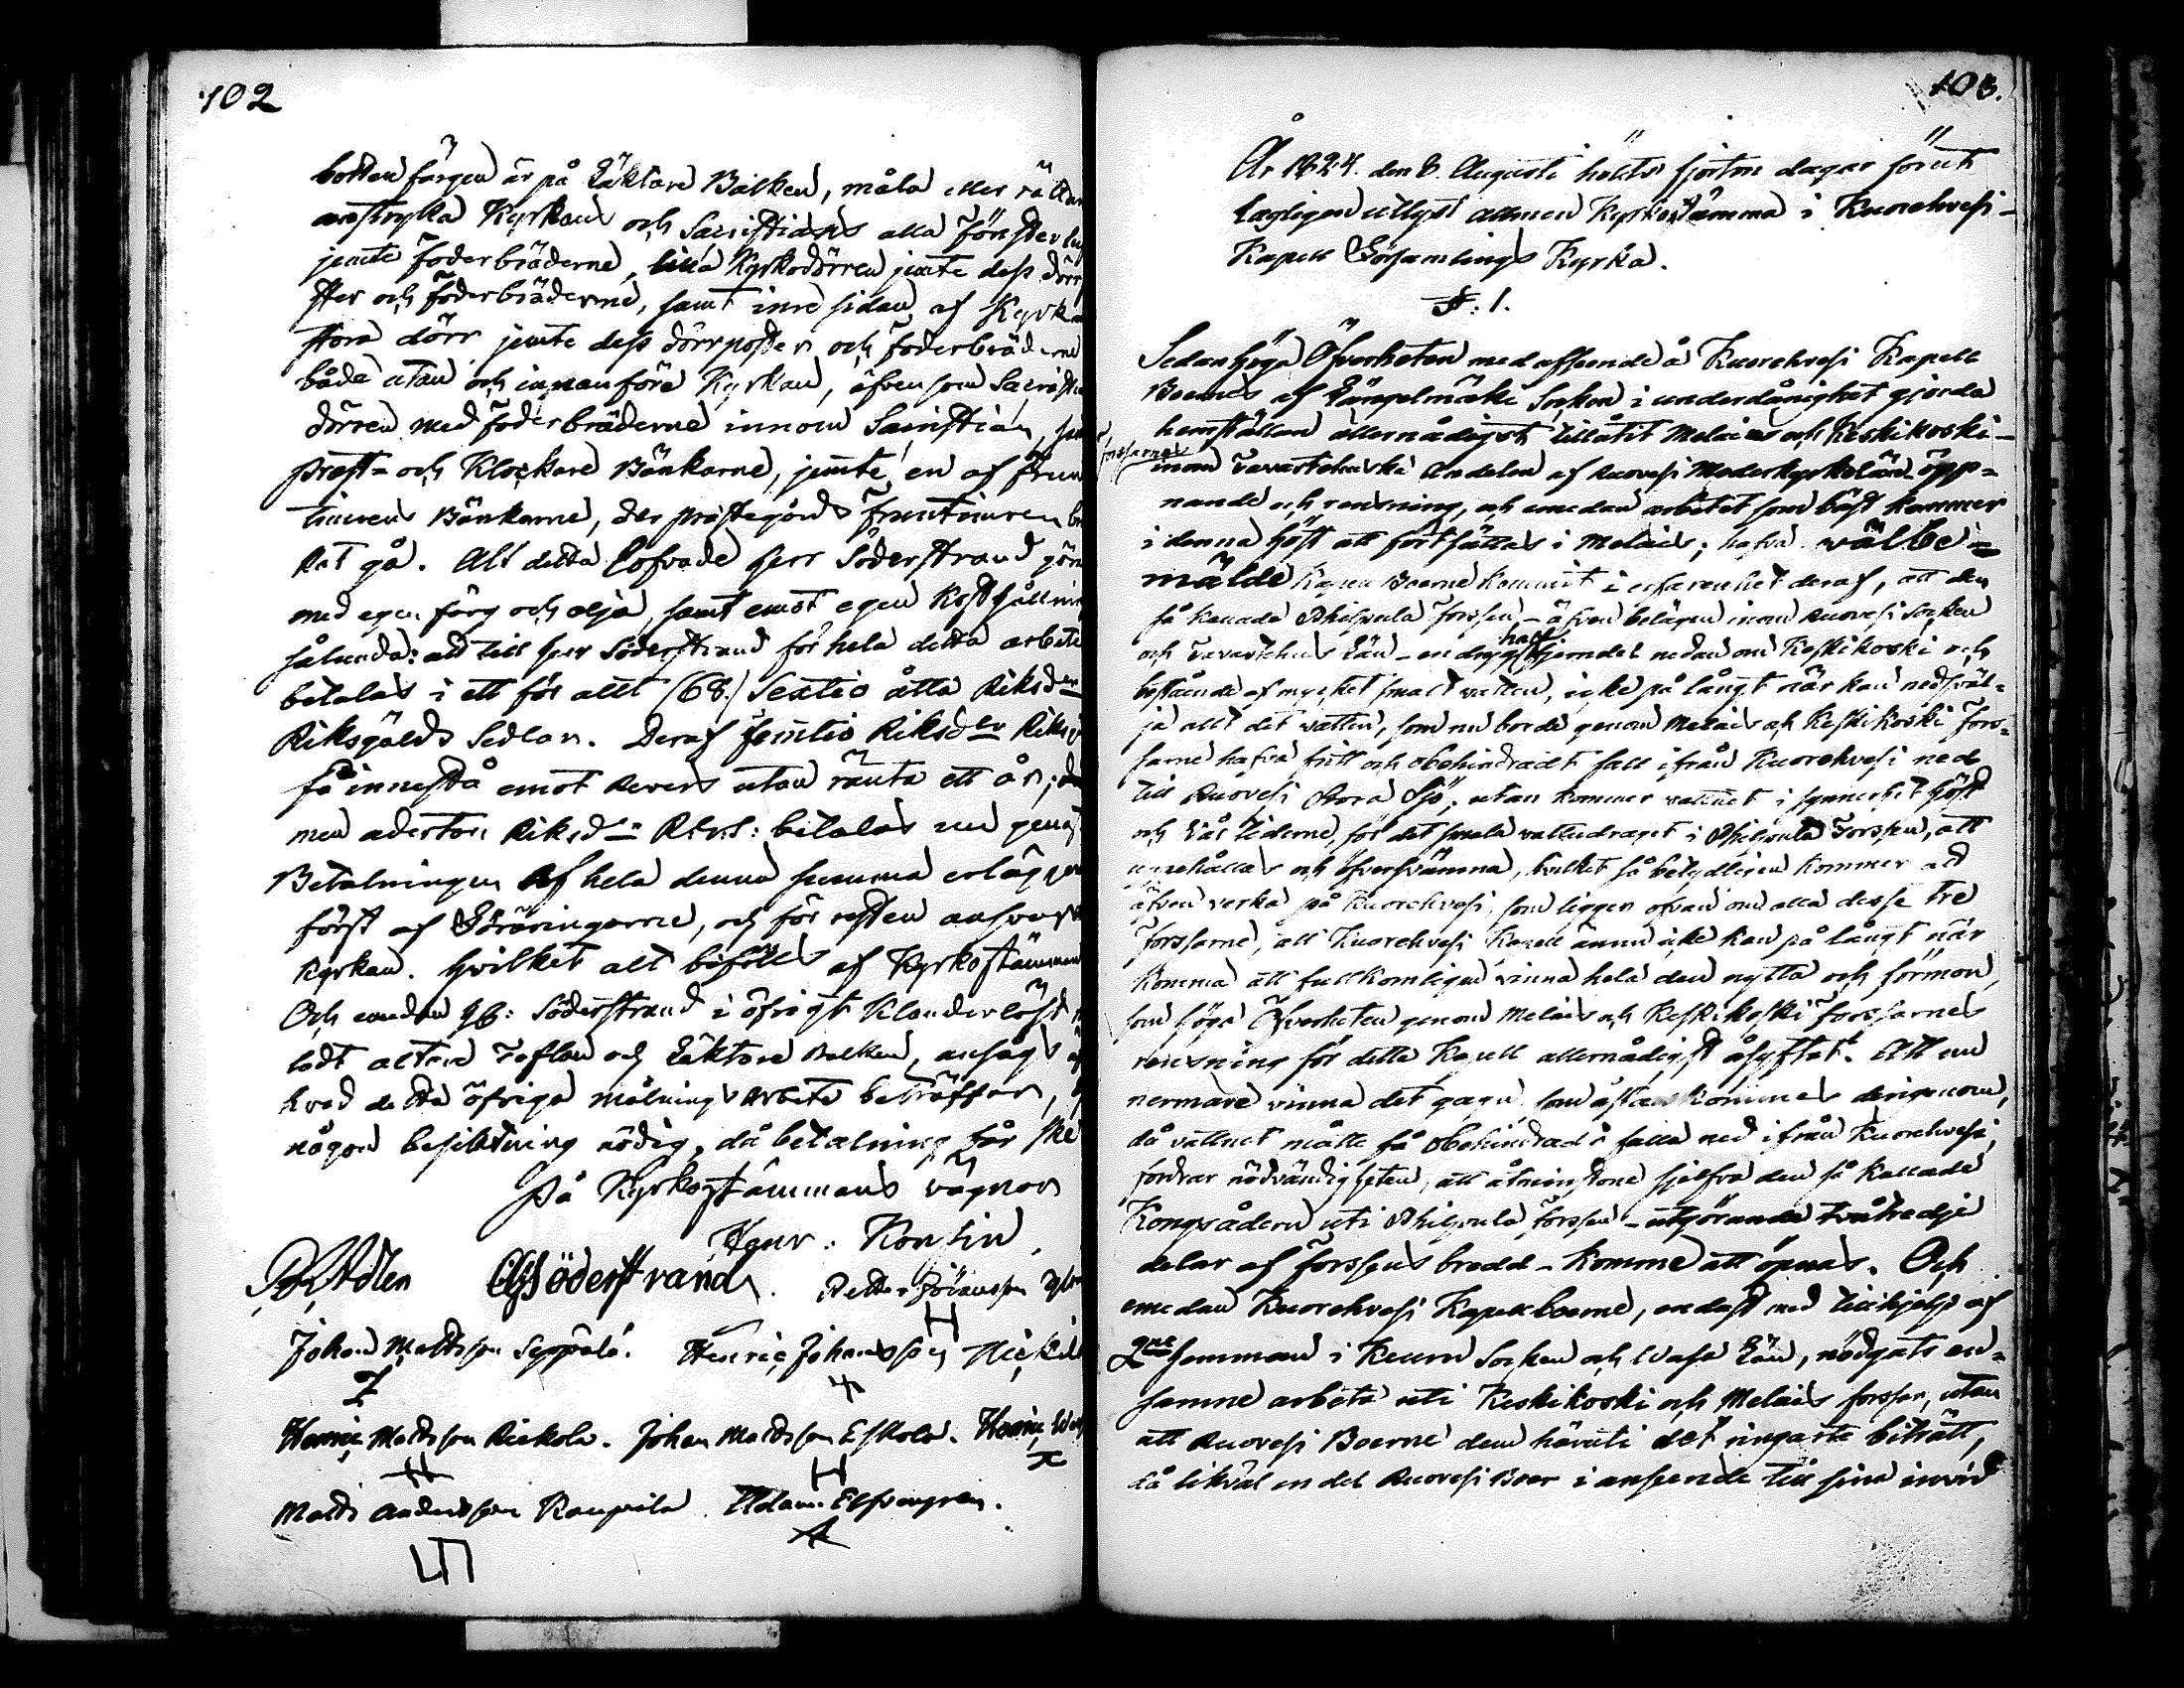 102
botten färgen är på Läktare Balken, måla eller rättare
anstryka Kyrkans och Sacristians alla Fönster lu
jemte foderbräderne, lilla Kyrkodörren jemte dess dörr
ster och foderbräderne, samt inre sidan af Kyrk
stora dörr jemte dess dörrposter och foderbräderne
både utan och innanföre Kyrkan, äfvensom Sacristie
dörren med foderbräderne innom Sacristian, sam
Prest- och Klockare Bänkarne, jemte en af frun
timrens Bänkarne, der prästegårds fruntimren br
kat gå. Alt detta lofvade Herr Söderstrand göra
med egen färg och olja, samt emot egen Kosthållnin
sålunda: att till Herr Söderstrand för hela detta arbete
betalas i ett för allt (68.) Sextio åtta Riksd:er
Riksgälds Sedlar. Deraf femtio Riksd:er Riksg
få innestå emot Revers utan ränta ett år; 
men aderton Riksd:r R:G:S: betalas nu genast
Betalningen af hela denna summa erlägges
först af Göräringarne, och för resten ansvarar
Kyrkan. Hvilket alt bifölls af Kyrkostämman
Och emedan Hr: Söderstrand i öfrigt Klanderlöst m
lodt altare Taflan och Läktare Balken, ansågs af
hvad detta öfriga målnings arbete beträffar,
någon besiktning nödig, då betalning får ske
På Kyrkostämmans vägnar
Henr: Konsin.
Adlen CGSöderstrand. Petter Jöransson
Johan Mattsson Seppälä. Henric Johansson Heickil
Henric Mattsson Rickola. Johan Mattsson Eskola. Henric
Matts Andersson Kaupila. Adam Elfvengren.
103.
År 1824. den 8. Augusti hölts fjorton dagar förut
lagligen utlyst allmen Kyrkostämma i Kuorehvesi-
Kapell Församlings Kyrka.
§: 1.
Sedan Höga Öfverheten med afseende å Kuorehvesi Kapell
Boernes af Längelmäki Socken i underdånighet gjorda
hemställan allernådigst tillåtit Melais och Keskikoski-
forssarnes
inom Tavastehuska Andelen af Ruovesi Moderkyrkolän öpp-
nande och rensning, och emedan arbetet som bäst kommer
i denna höst att fortsättas i Melais; hafva välbe-
mälde Kapell Boerne kommit i erfarenhet deraf, att den
så kallade Philpula Forssen, - äfven belägen inom Ruovesi Socken
half
och Tavastehus Län - en dryg fjerndel nedanom Keskikoski och
bestående af mycket smalt vatten, icke på långt när kan nedsväl-
ja allt det vatten, som nu borde genom Melais och Keskikoski Fors-
sarne hafva fritt och obehindradt fall ifrån Kuorehvesi ned
till Ruovesi Stora Sjö; utan kommer vattnet i synnerhet Höst
och Vår tiderne, för det smala vattudraget i Philpula Forssen, att
uppehållas och öfversvämma, hvilket så betydligen kommer att
äfven verka på Kuorehvesi, som ligger ofvan om alla desse tre
Forssarne, att Kuorehvesi Kapell ännu icke kan på långt när
Komma att fullkomligen vinna hela den nytta och förmon,
som Höga Öfverheten genom Melais och Keskikoski Forssarnes
rensning för detta Kapell allernådigst åsyftat. Att nu
nermare vinna det gagn, som åstadkommes derigenom,
då vattnet måtte få obehindradt falla ned ifrån Kuorehvesi,
fordrar nödvändigheten, att åtminstone sjelfva den så kallade
Kongsådern uti Philpula Forssen - utgörande tvåtredje
delar af Forssens bredd - komme att öpnas. Och
emedan Kuorehvesi Kapellboerne, endast med tillhjelp af
2ne hemman i Keuru Socken och Wasa Län, nödgats en-
samme arbeta uti Keskikoski och Melais forssar, utan
att Ruovesi Boerne dem häruti det ringaste biträtt,
då likväl en del Ruovesi Boer i anseende till sina invid